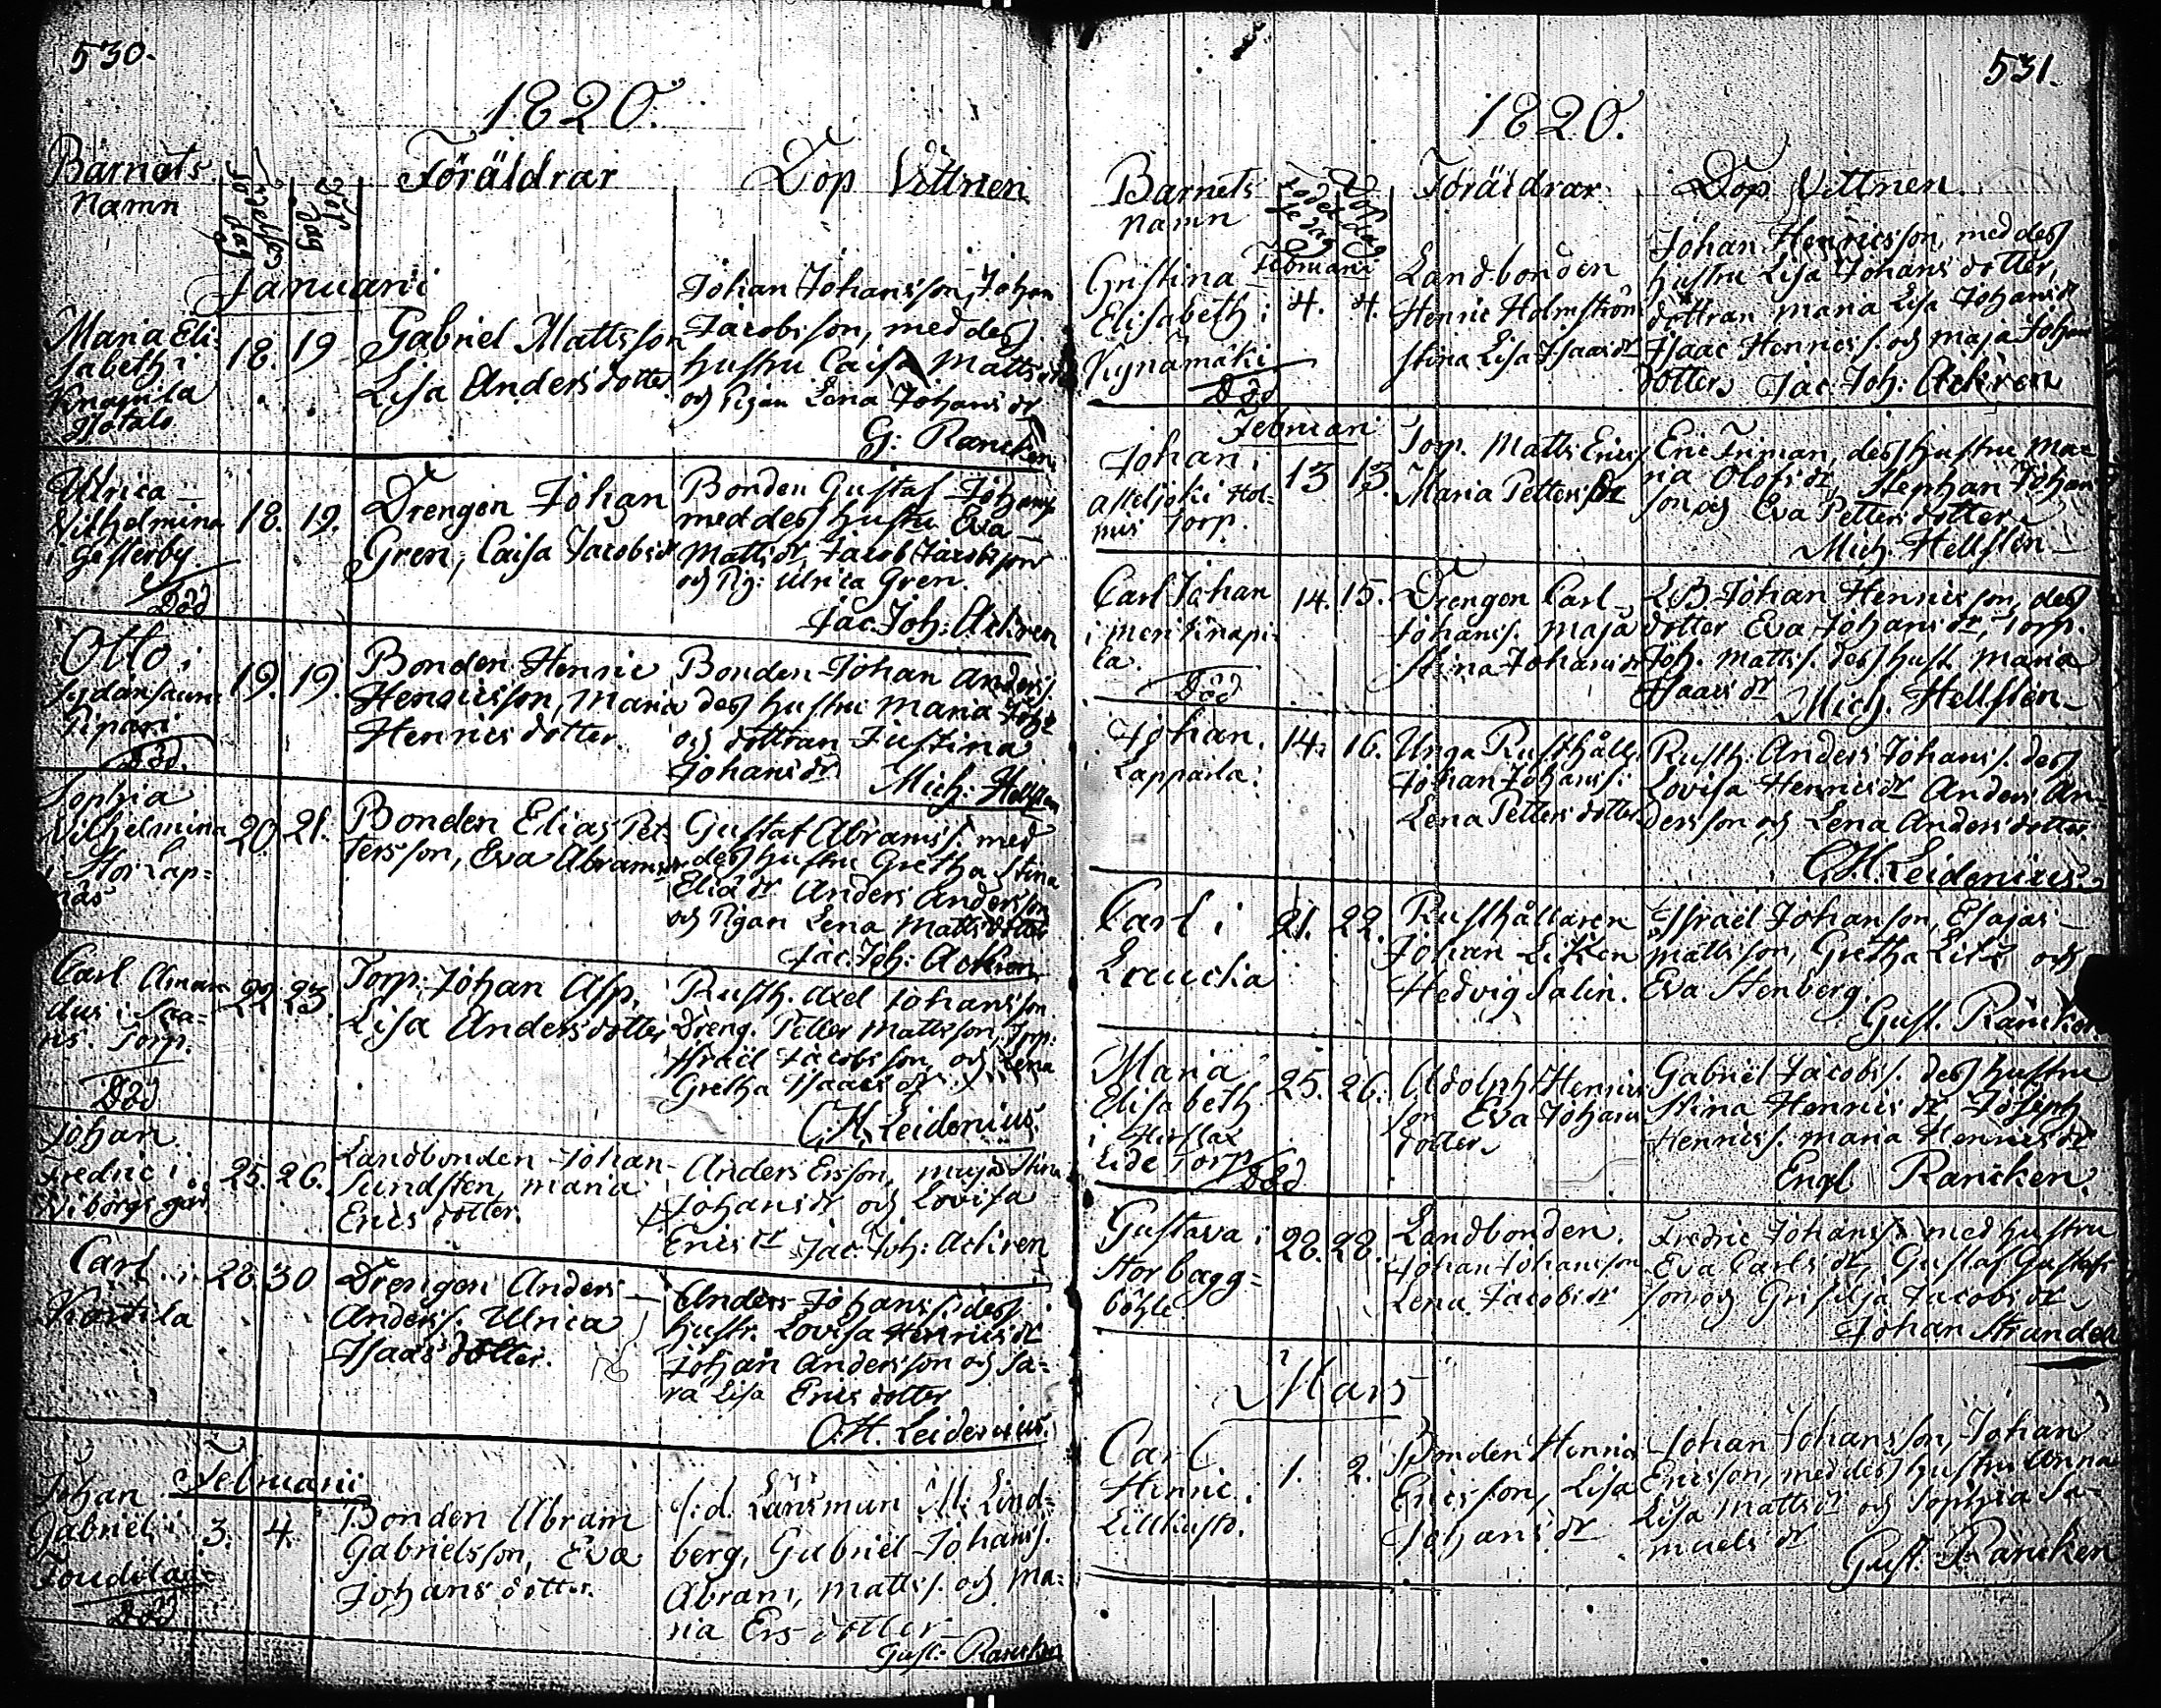 530.
1820.
Barnets
Namn
Födelse
dag
Dop
dag
Föräldrar
Dop Vittnen
Januarii
Maria Eli-
sabeth i
Knapila
18. 19
Gabriel Mattsson
Lisa Andersdotter
Johan Johansson, Johan
Jacobsson, med dess
hustru Caisa Mattsdr
och Pigan Lena Johansdr
G: Rancken
Ulrica
Vilhelmina
i Gesterby
Död
18. 19.
Drengen Johan
Gren, Caisa Jacobsdr
Bonden Gustaf Johanss
med dess hustru Eva
Mattsdr, Jacob Jacobsson
och Pig: Ulrica Gren.
Jac: Joh: Ackren
Otto i
Pipari
Död.
19. 19.
Bonden Henric
Henricsson, Maria
Henricsdotter
Bonden Johan Anderss.
dess hustru Maria Johdr
och dottran Justina
Johansdr
Mich: Hellsten
Sophia
Vilhelmina
i Stor Lap=
näs
20. 21.
Bonden Elias Pet-
tersson, Eva Abramsdr
Gustaf Abramss. med
dess hustru Gretha Stina
Eliädr Anders Andersson
och Pigan Lena Mattsdotter
Jac: Joh: Ackren
Carl Aman
dus i Saa=
ris Torp.
Död
22. 23.
Torp: Johan Asp,
Lisa Andersdotter
Rusth. Axel Johansson
Dreng. Petter Mattsson, Torp:
Israël Jacobsson och Lena
Gretha Isaacsdr
C. H. Leidenius.
Johan
Fredric i
Wiborgs gård
25. 26.
Landbonden Johan
Sundsten, Maria
Ericsdotter.
Anders Ersson, Maja Stina
Johansdr och Lovisa
Ericsdr Jac: Joh: Ackren
Carl i
Kortila
28. 30
Drengen Anders
Anderss. Ulrica
Isaacsdotter.
Anders Johanss. dess
hustr. Lovisa Henricsdr
Johan Andersson och Sa=
ra Lisa Ericsdotter
C. H. Leidenius.
Februarii
Johan
Gabriel i
Död
3. 4.
Bonden Abram
Gabrielsson, Eva
Johansdotter.
f: d. Länsman M. Lind=
berg, Gabriel Johanss.
Abram, Mattss. och Ma=
ria Ersdotter
Gust: Rancken
531.
1820.
Barnets
Namn
Födel
se dag
Dop
dag
Föräldrar
Dop Vittnen.
Februarii
Cristina
Elisabeth i
Kynämäki
Död
4. 4.
Landbonden
Henric Holmström
Stina Lisa Isaacsdr
Johan Henricsson, med dess
hustru Lisa Johansdotter,
dottran Maria Lisa Johansdr
Isaac Henricss. och Maja Johans
dotter. Jac: Joh: Ackren
Februari
Johan i
Torp.
13 13.
Torp. Matts Ericss.
Maria Pettersdr
Eric Friman, dess hustru Ma=
ria Olofsdr, Stephan Johans
son och Eva Pettersdotter
Mich. Hellsten
Carl Johan
i Meri Knapi-
la.
Död
14. 15.
Drengen Carl
Johanss. Maja
Stina Johansdr
L.B. Johan Henricsson, dess
dotter Eva Johansdr, Torp.
Joh. Mattss. dess hust. Maria
Isaacsdr Mich. Hellsten
Johan i
Lappila.
14. 16.
Unga Rusthåll.
Johan Johanss.
Lena Pettersdotter
Rusth. Anders Johanss. dess
Lovisa Henricsdr Anders An-
dersson och Lena Andersdotter
C. H. Leidenius.
Carl i
21. 22.
Rusthållaren
Johan Liken
Hedvig Salin.
Israël Johansson, Esajas
Mattsson, Gretha Lik och
Eva Stenberg.
Gust. Rancken
Maria
Elisabeth
i Hirslax
Lide Torp
Död
25. 26.
Adolph Henrics
son Eva Johans
dotter
Gabriel Jacobss. dess hustru
Stina Henricsdr, Joseph
Henricss. Maria Henricsdr
Engl Rancken.
Gustava i
Stor bagg=
böhle
28. 28.
Landbonden
Johan Johansson
Lena Jacobsdr
Fredric Johanss. med hustru
Eva Carlsdr, Gustaf Gustafs
son och Grisilja Jacobsdr
Johan Strandell
Mars
Carl
Henric i
1. 2.
Bonden Henric
Ericsson, Lisa
Johansdr
Johan Johansson, Johan
Ericsson, med dess hustru Anna
Lisa Mattsdr och Sophia Sa-
muelsdr
Gust. Rancken